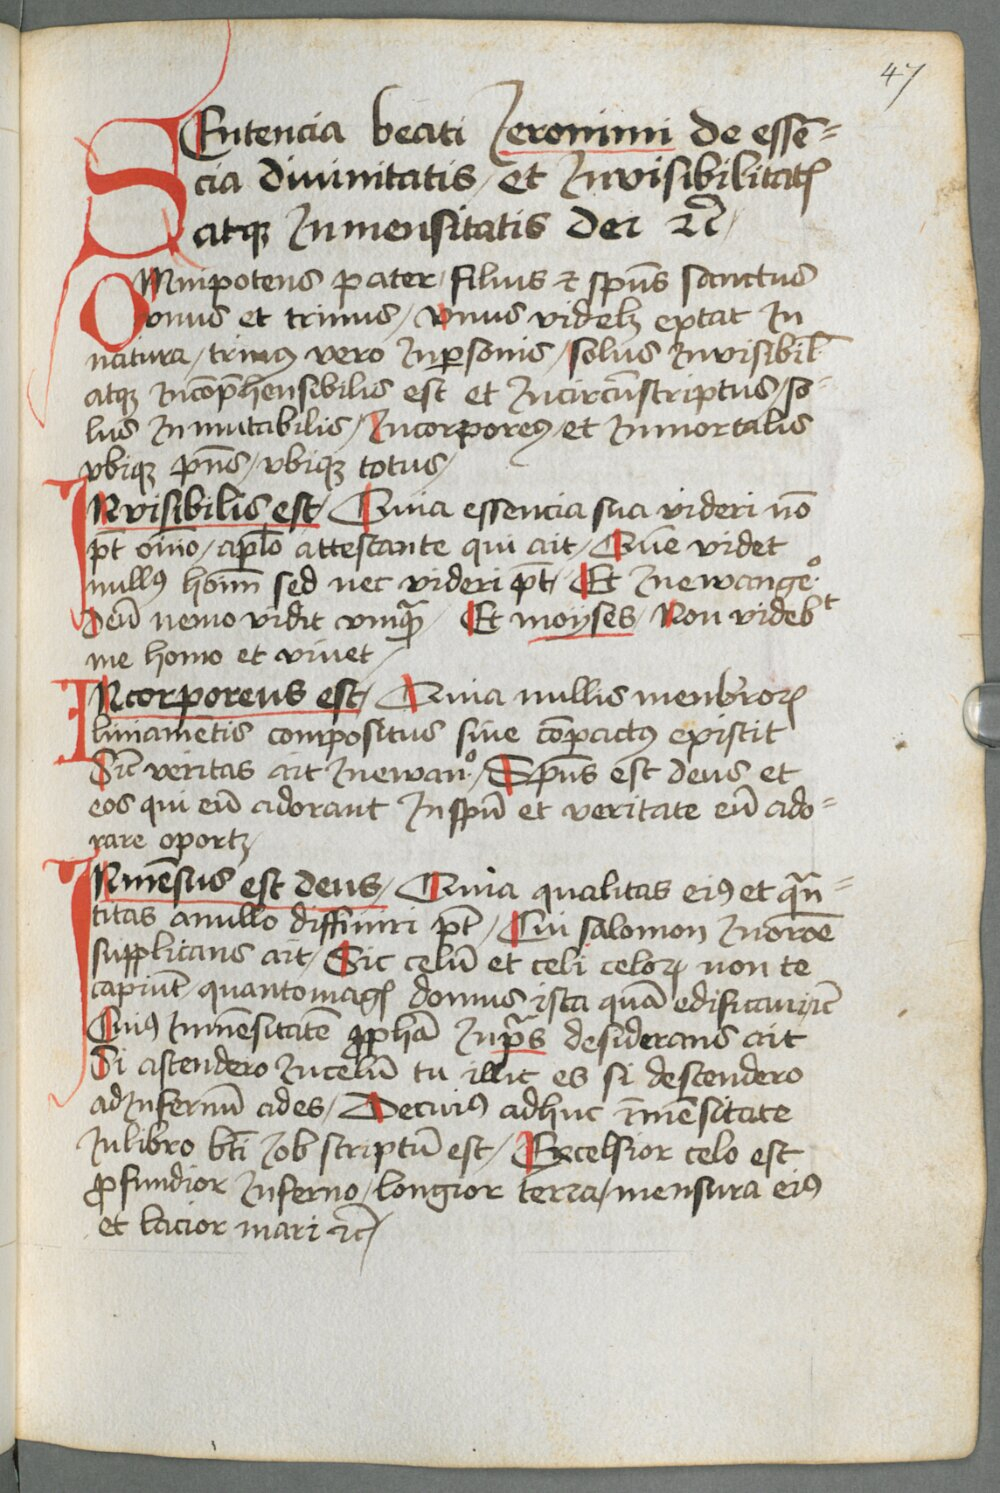 47
SEntencia beati Jeronimi de essē=
cia diuinitatis / et Inuisibilitatꝭ
atqꝫ Inmensitatis dei ⁊c̄ /
OMnipotens pater / filius ⁊ sp̄us sanctus
vnus et trinus / vnus videlꝫ extat In
natura / trinꝰ vero Inꝑsonis / solus Inuisibil̄
atqꝫ Incōp̄hensibilis est et Incircūscriptus / so=
lus Inmutabilis / Incorporeꝰ / et Inmortalis
vbiqꝫ p̄ns / vbiqꝫ totus /
INvisibilis est / Quia essencia sua videri nō
pt̄ oīno / apl̄o attestante qui ait / Quē videt
nullꝰ hoīm sed nec videri pt̄ / Et Inewangeᵒ
deū nemo vidit vnqᷓ / Et moyses / Non videbᵗ
me homo et viuet /
INcorporeus est / Quia nullis menbrorꝝ
liniamētis compositus siue cōpactꝰ existit
Sic̄ veritas ait Inewanᵒ / Sp̄us est deus et
eos qui eū adorant Insp̄u et veritate eū ado=
rare oportꝫ /
INmēsus est deus / Quia qualitas eiꝰ et qᷓn=
titas anullo diffiniri pt̄ / Cui salomon Inoroē
supplicans ait / Sic celū et celi celorꝝ non te
capiūt / quantomagꝭ domus ista quā edificaui ⁊c̄
Cuiꝰ Inmēsitatē ꝓphā Inpᷓs desiderans ait
Si ascendero Incelū tu illic es si descendero
adInfernū ades / Decuiꝰ adhuc īmēsitate
Inlibro bt̄i Iob scriptū est / Excelsior celo est
ꝓfundior Inferno / longior terra / mensura eiꝰ
et lacior mari ⁊c̄ /